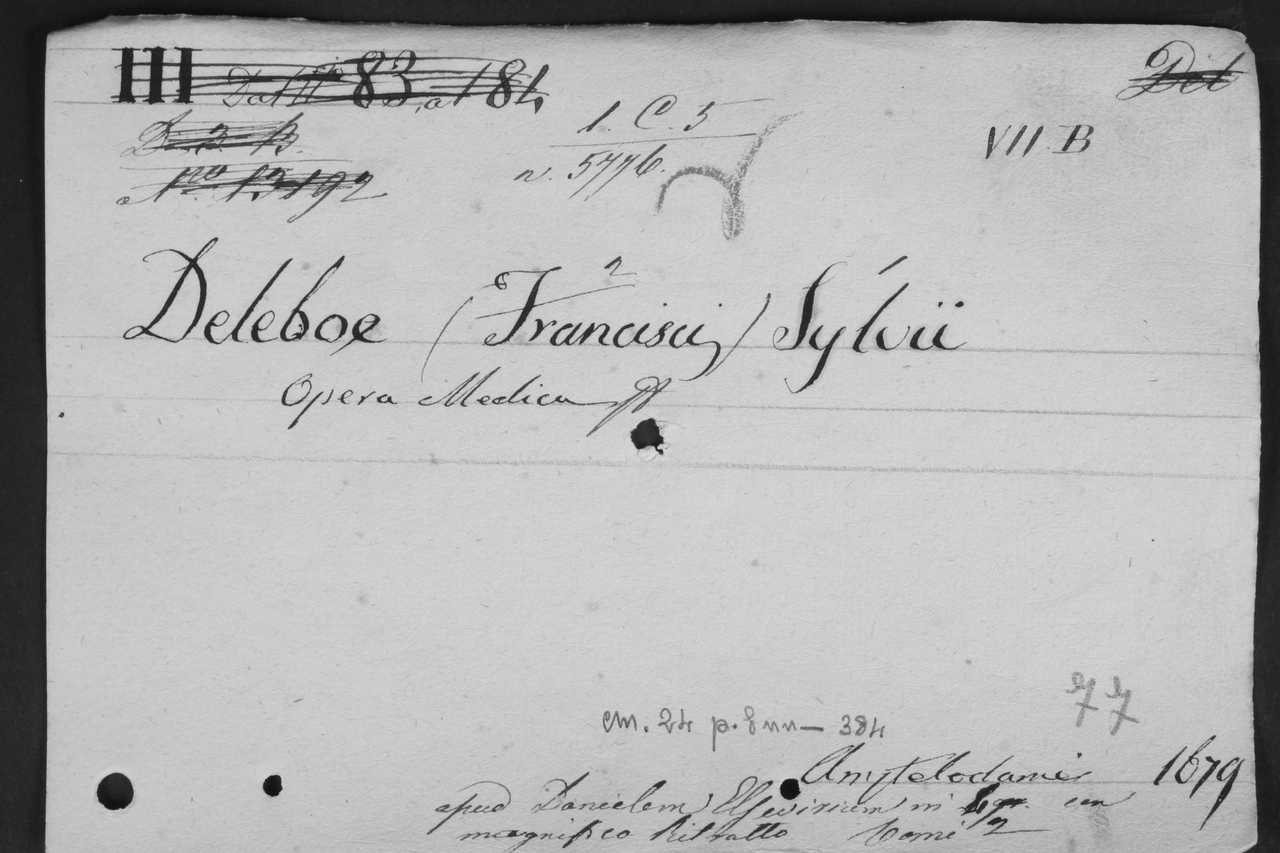 III 83 184
Del
D. 3 B.
No. 13192
1. C. 5
n. 5776.
VII B
2
Deleboe (Francisci) Sylvii
Opera Medica
77
cm. 24 p. 8 nn — 384
Amstelodami 1679
apud Danielem Elsevirium in con
magnifico Ritratto Tomi 2